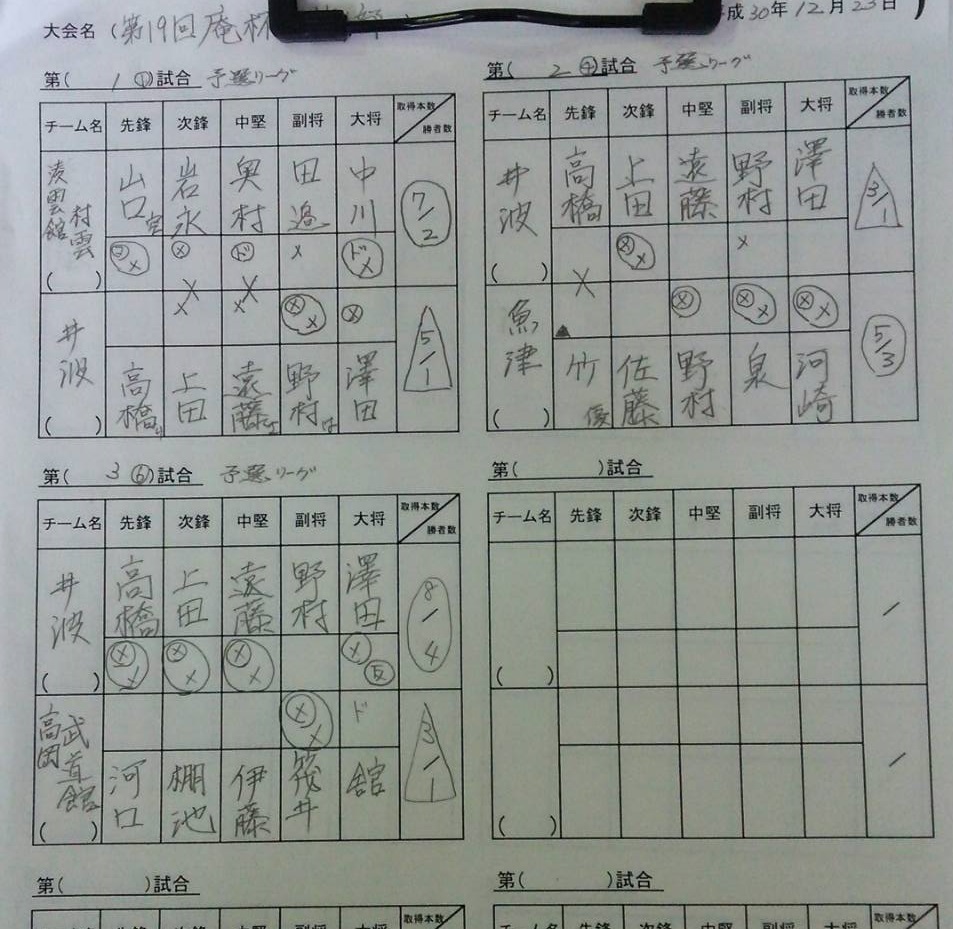 大会名 (第19回庵杯
平成30年12月23日 )
第( 1 ①)試合 予選リーグ
チーム名 先鋒 次鋒 中堅 副将 大将 取得本数 勝者数
凌雲館 村雲 山口宏 岩永 奥村 田邉 中川 7/2
( ) メメ メ ド メ ドメ
井波 メ メ メメ メ 5/1
( ) 高橋り 上田 遠藤よ 野村は 澤田
第( 2 ④)試合 予選リーグ
チーム名 先鋒 次鋒 中堅 副将 大将 取得本数 勝者数
井波 高橋 上田 遠藤 野村 澤田 3/1
( ) メメ メ
魚津 ▲ メ メメ メメ 5/3
( ) 竹優 佐藤 野村 泉 河崎
第( 3 ⑥)試合 予選リーグ
チーム名 先鋒 次鋒 中堅 副将 大将 取得本数 勝者数
井波 高橋 上田 遠藤 野村 澤田 8/4
( ) メメ メメ メメ メ反
高岡 武道館 メメ ド 3/1
( ) 河口 棚池 伊藤 筏井 舘
第( )試合
チーム名 先鋒 次鋒 中堅 副将 大将 取得本数 勝者数
( ) /
( ) /
第( )試合
チーム名 先鋒 次鋒 中堅 副将 大将 取得本数
第( )試合
チーム名 先鋒 次鋒 中堅 副将 大将 取得本数